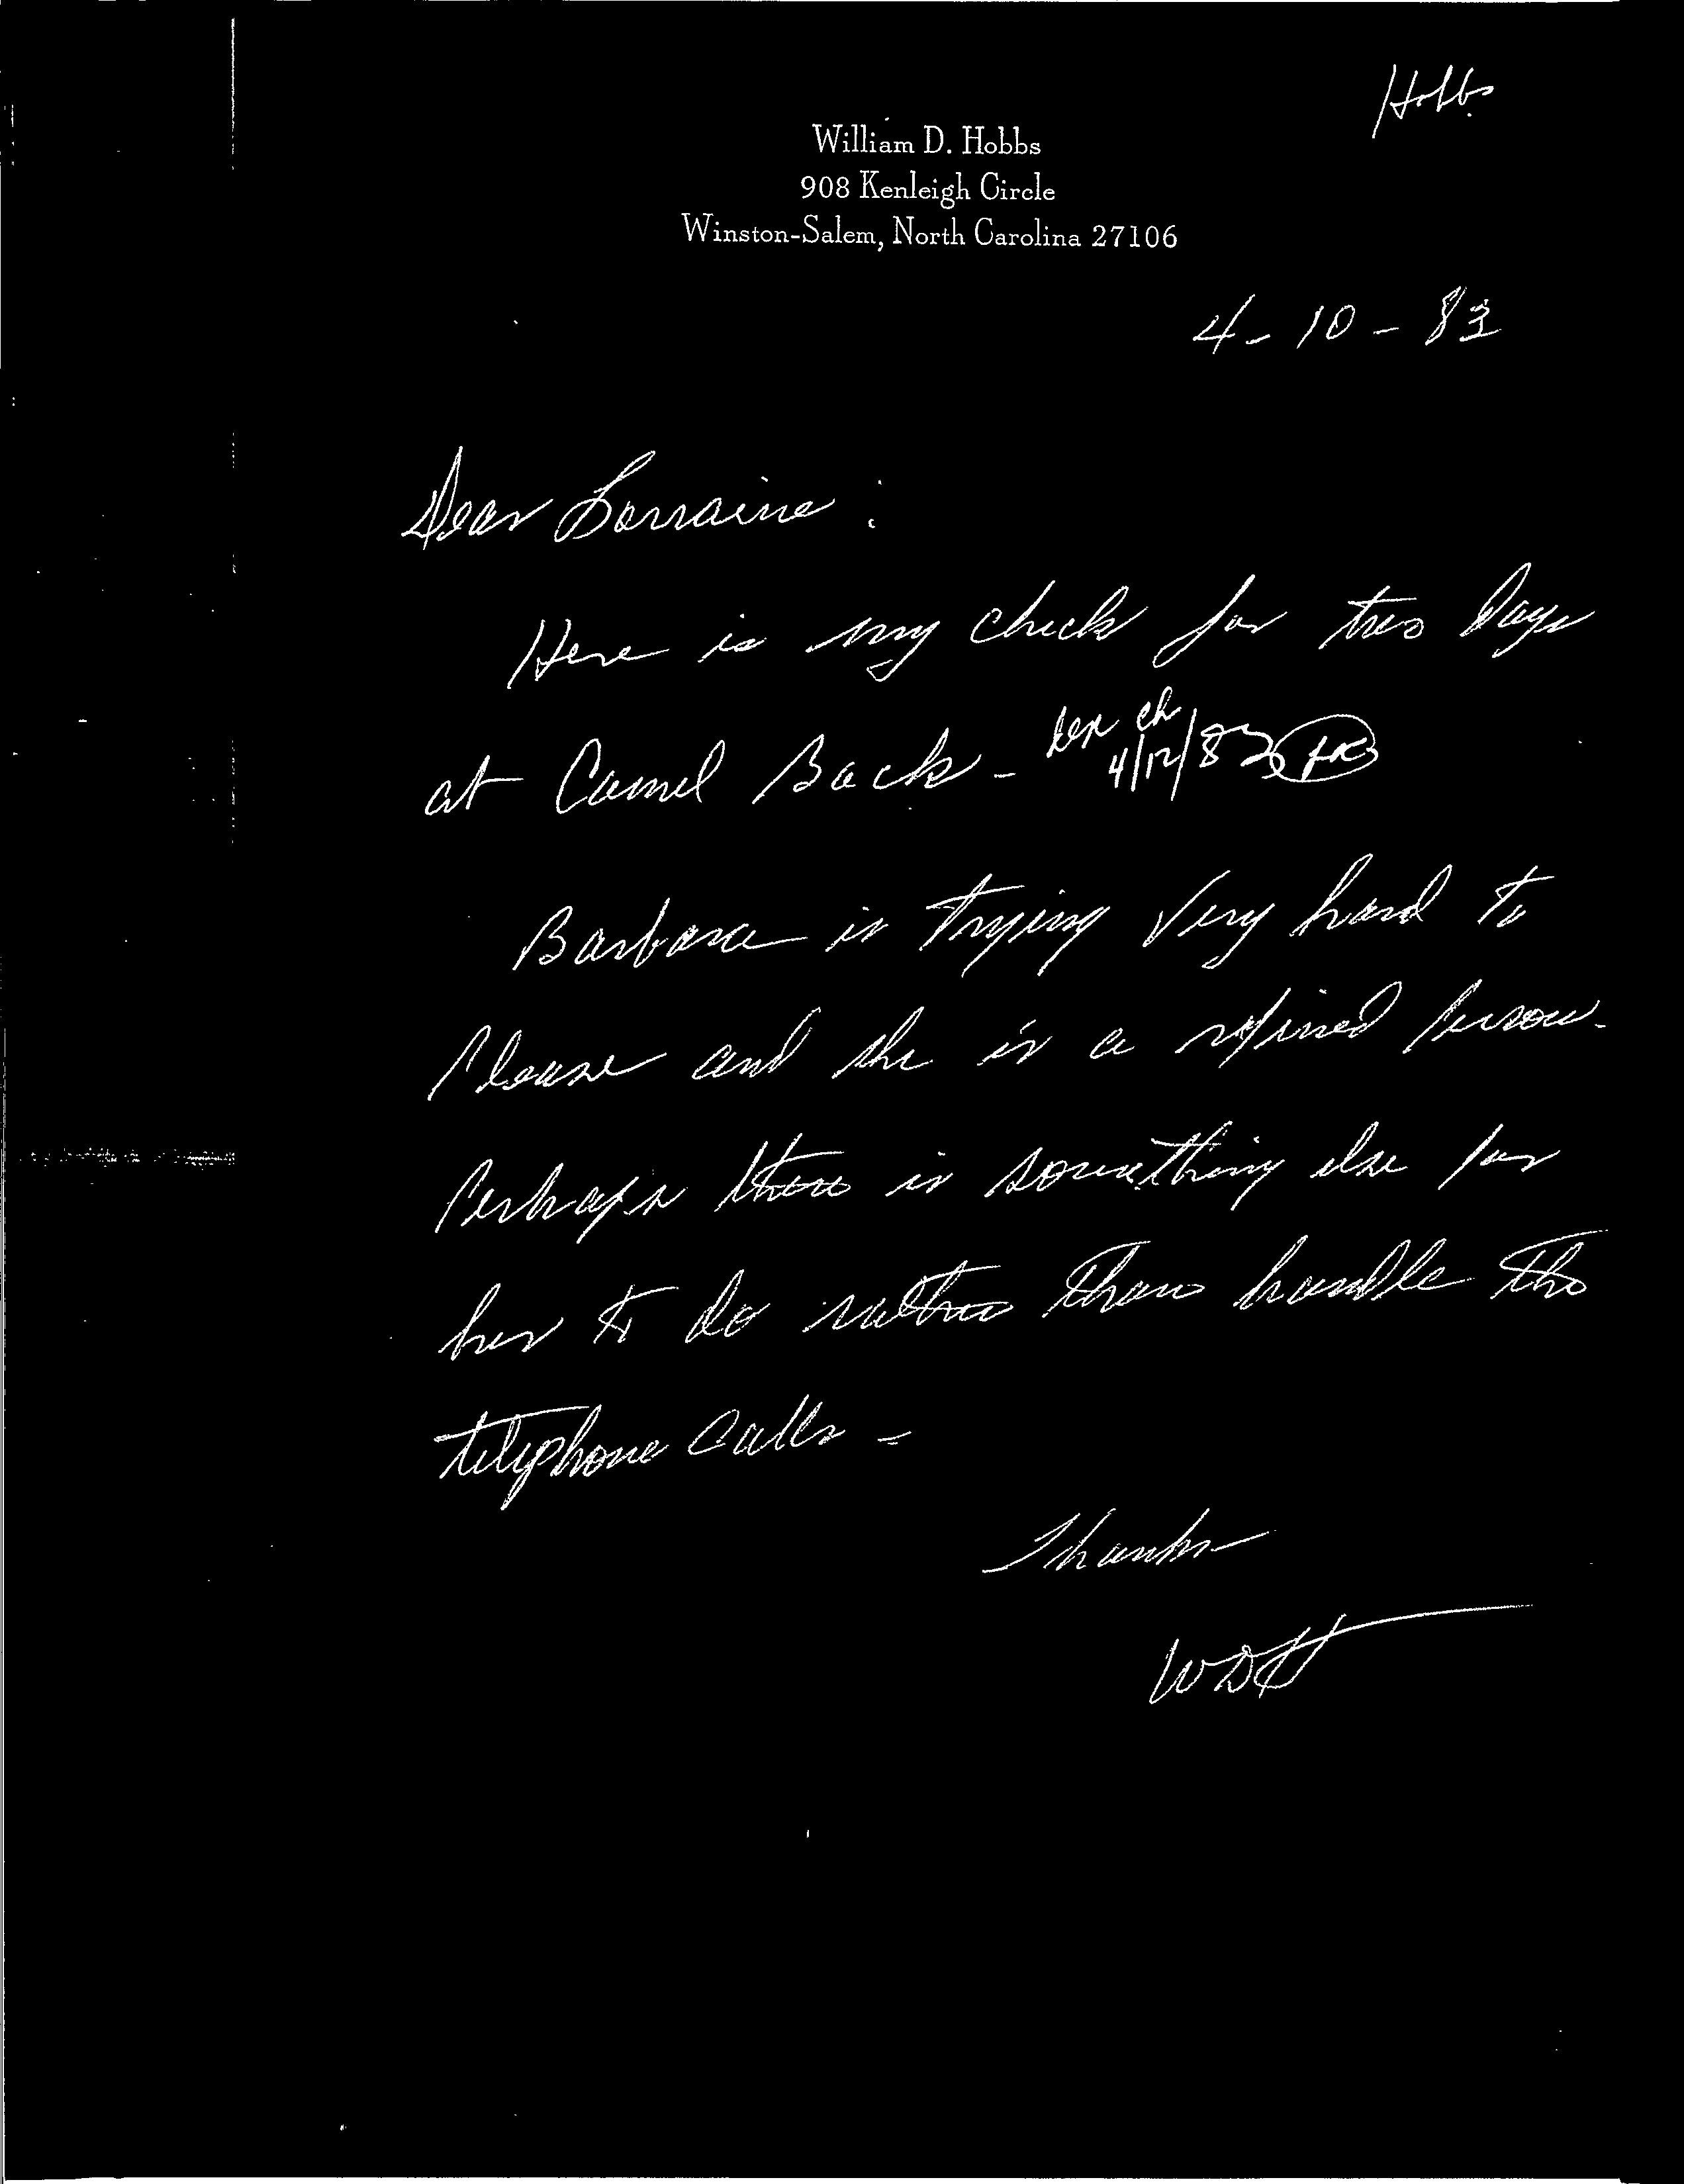 Hobbs
William D. Hobbs
908 Kenleigh Circle
Winston-Salem, North Carolina 27106
4-10-83
Dear Lorraine:
Here is my check for two days
at Camel Back -
ch
4/12/83
Barbara is trying very hard to
please and she is a refined person.
Perhaps there is something else for
her to do rather than handle the
telephone calls -
Thanks
WDH